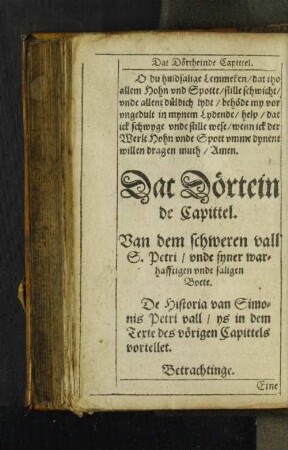 Dat Dörtheinde Capittel.
O du huldsalige Lemmeken / dat tho
allem Hohn vnd Spotte / stille schwicht /
vnde allent düldich lydt / behöde my vor
vngedult in mynem Lydende / help / dat
ick schwyge vnde stille wese / wenn ick der
Werlt Hohn vnde Spott vmme dynent
willen dragen muth / Amen.
Dat Dörtein
de Capittel.
Van dem schweren vall
S. Petri / vnde syner war-
hafftigen vnde saligen
Bote.
De Historia van Simo-
nis Petri vall / ys in dem
Texte des vörigen Capittels
vortellet.
Betrachtinge.
Eine